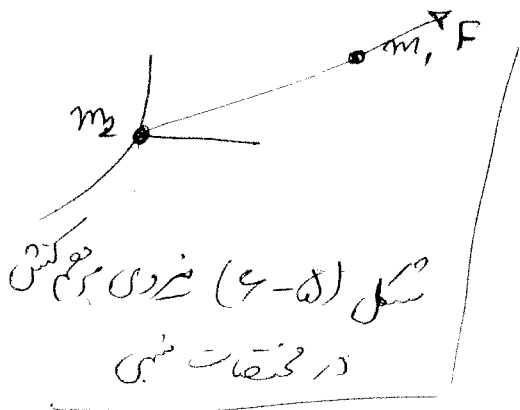 m₁ F
m₂
شکل (۵-۶) نیروی برهم‌کنش
در مختصات نسبی